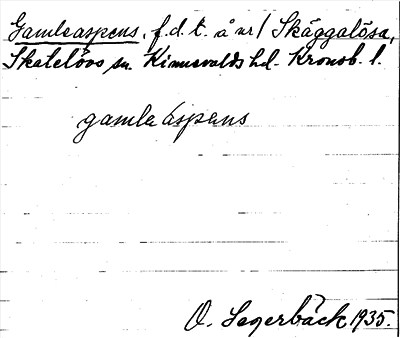 Gamleaspens, f.d.t. å nr 1 Skäggalösa,
Skatelövs sn. Kinnevalds hd. Kronob. l.
gamleaspens
O. Segerbäck 1935.